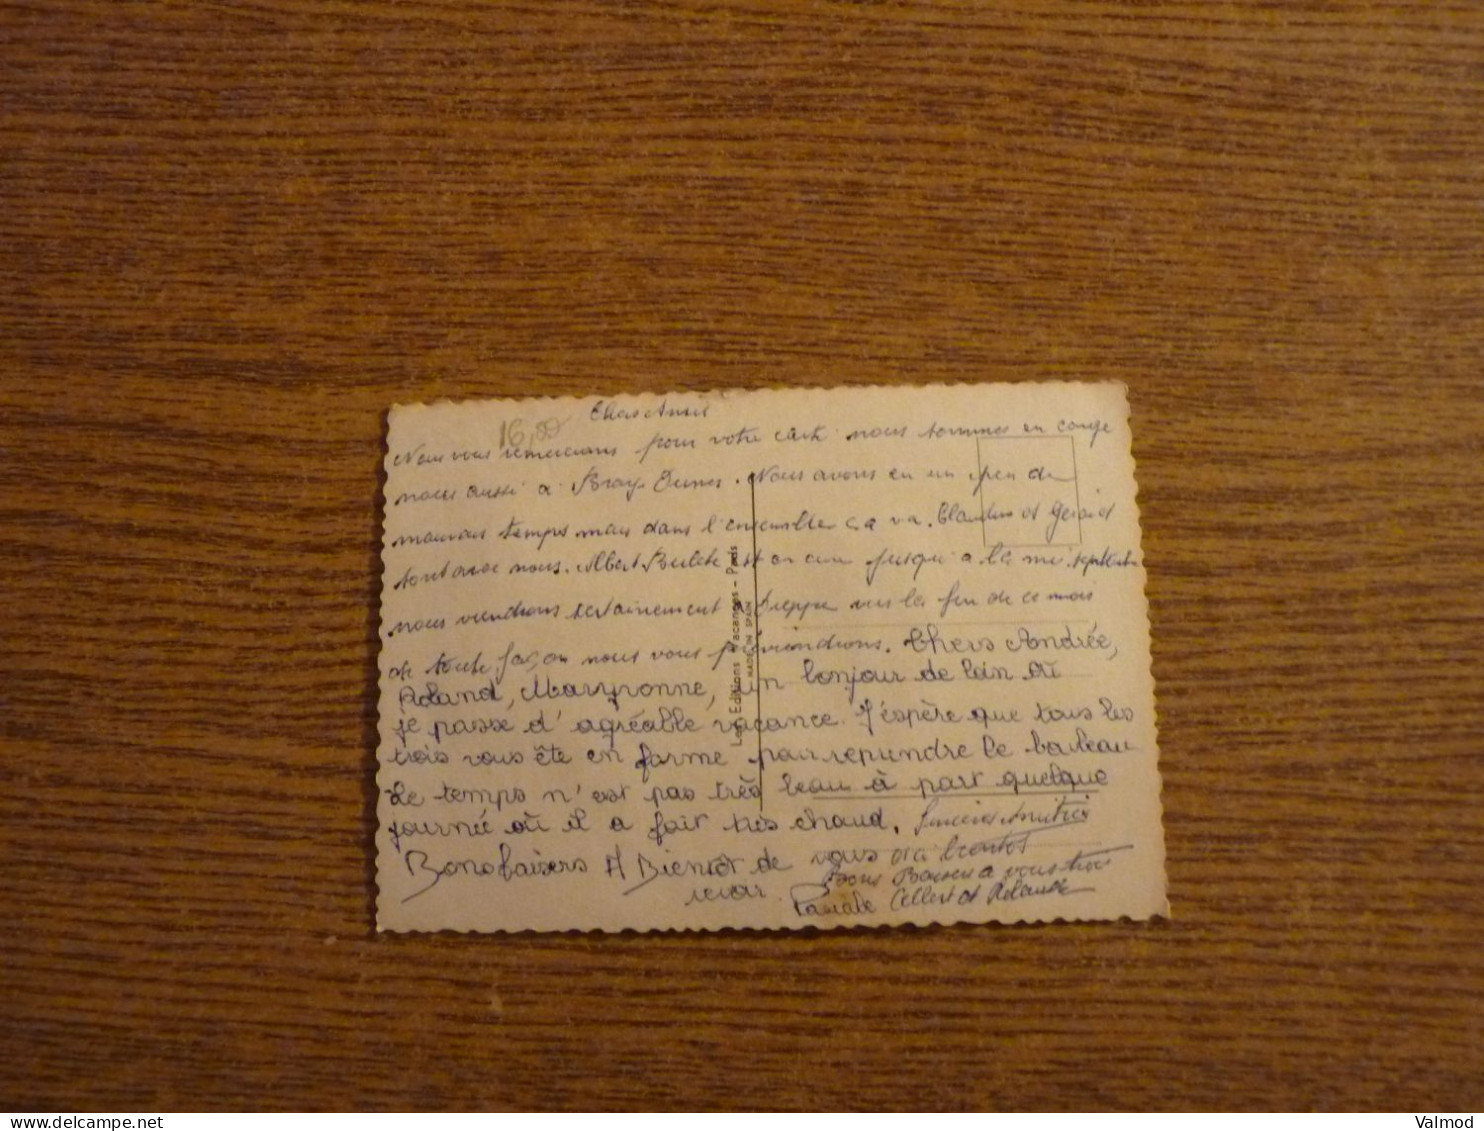 16,00
Chers Amis
Nous vous remercions pour votre carte nous sommes en conge
nous aussi à Bray Dunes. Nous avons eu un peu de
mauvais temps mais dans l'ensemble ça va. Claudine et Gerard
sont avec nous. Albert est en jusqu'a la mi septembre
nous viendrons certainement a Dieppe vers la fin de ce mois
de toute façon nous vous préviendrons. Chers Andrée,
Roland, Maryvonne, un bonjour de loin où
je passe d'agréable vacance. J'espère que tous les
trois vous ête en forme pour reprendre le bouleau
Le temps n'est pas très beau à part quelque
journée où il a fait très chaud. Sincères Amitiés
Bons baisers A Bientôt de vous et a bientot
revoir. Bons Baisers a vous trois
Pascale et
Les Editions Vacances - Paris
MADE IN SPAIN
Valmod